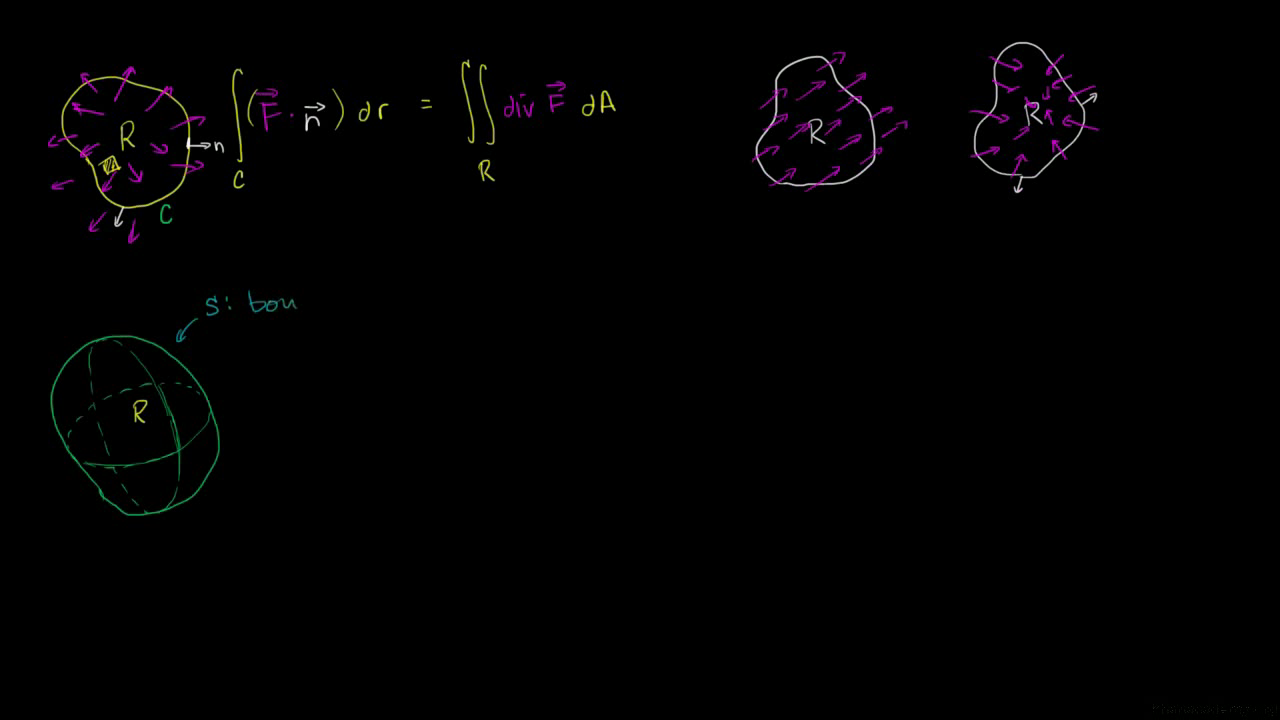 R
n
C
∫_C (F⃗ · n⃗) dr = ∬_R div F⃗ dA
R
R
S: bou
R